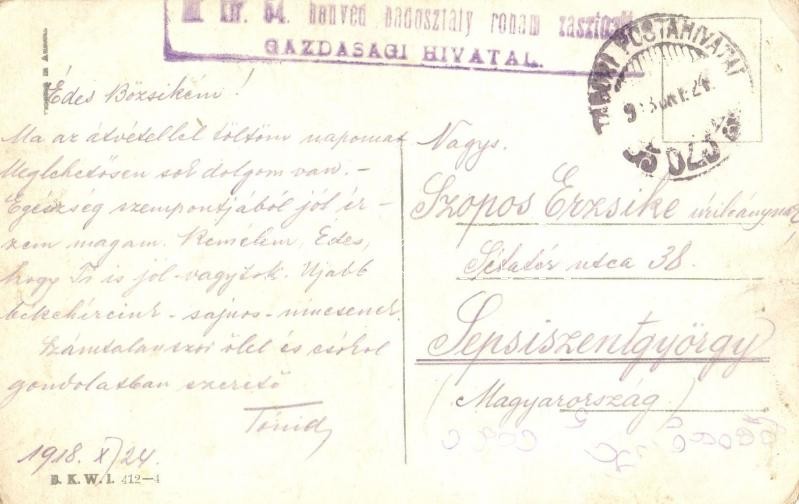 M. kir. 54. honvéd hadosztály roham zászlóalj
GAZDASÁGI HIVATAL.
TÁBORI POSTAHIVATAL
Édes Bözsikém!
Ma az átvétellel töltöm napomat
Meglehetősen sok dolgom van. -
Egészség szempontjából jól ér-
zem magam. Remélem, Édes,
hogy Ti is jól vagytok. Ujabb
békehíreink - sajnos - nincsenek
Számtalanszor ölel és csókol
gondolatban szerető
Tónid
1918. X/24.
B. K. W. I. 412-4
Nagys.
Szopos Erzsike úrileánynak
Sétatér utca 38.
Sepsiszentgyörgy
(Magyarország)